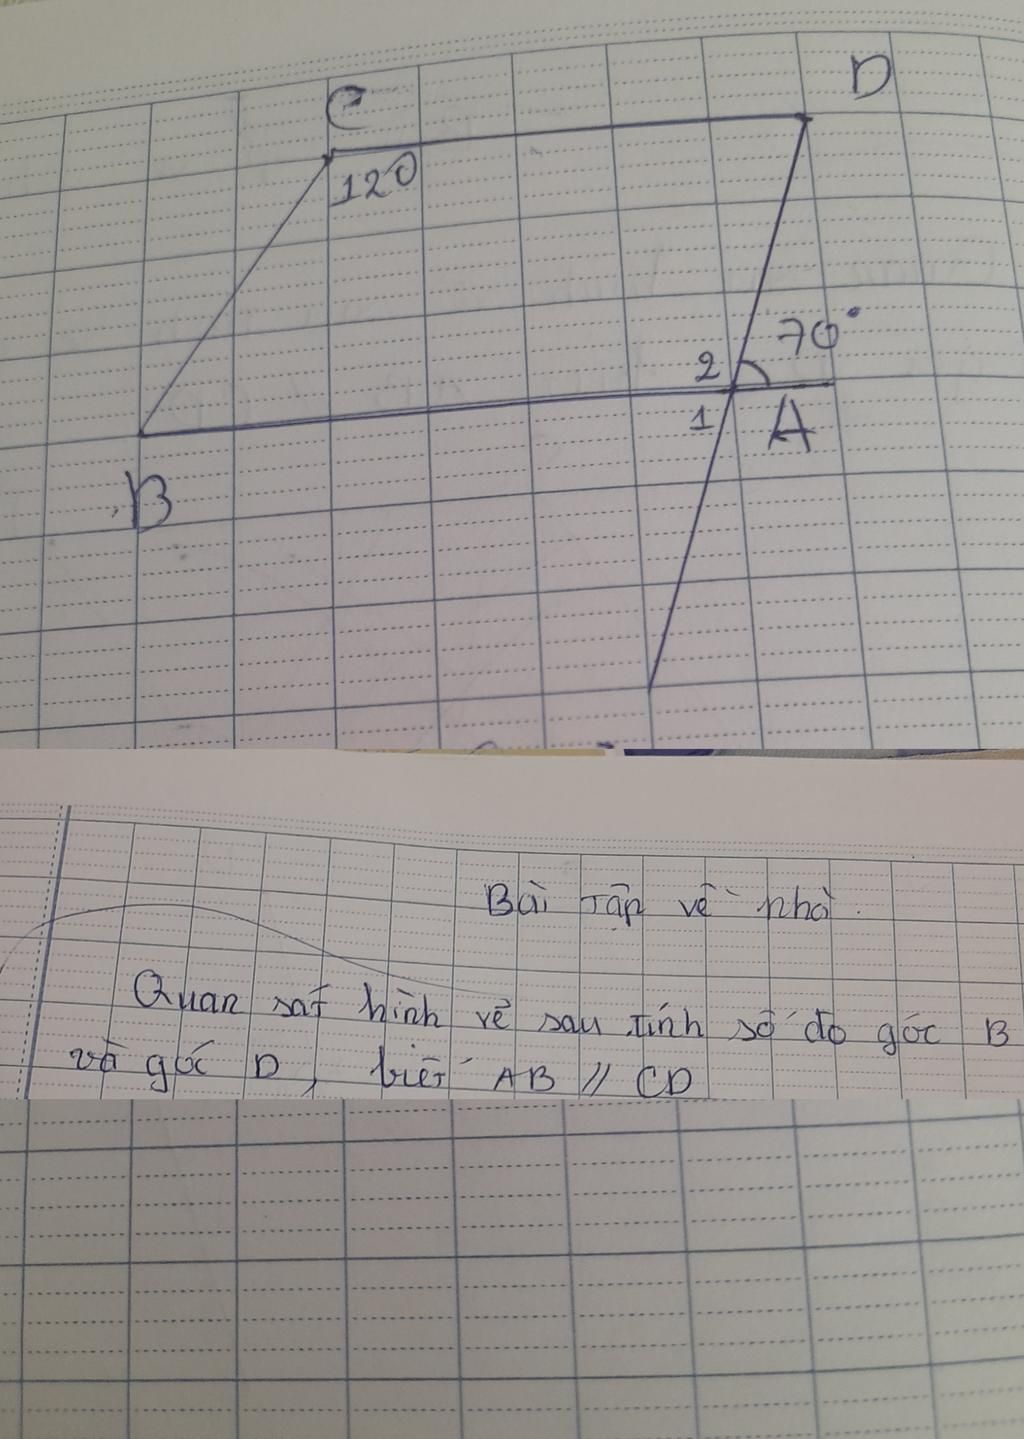 C
D
120
70°
2
1
A
B
Bài Tập về nhà.
Quan sát hình vẽ sau tính số đo góc B
và góc D, biết AB // CD